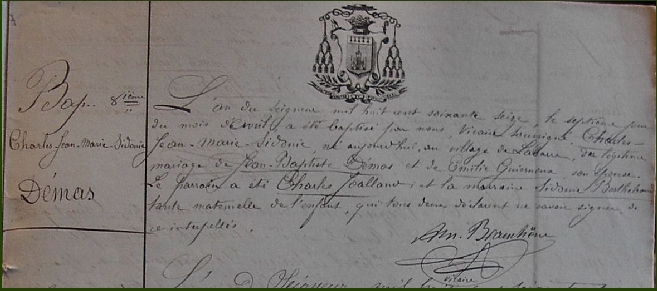 Bap. 8ième
Charles Jean-Marie Sidonie
Démas
L'an du Seigneur mil huit cent soixante seize, le septième jour
du mois d'Avril, a été baptisé par nous, Vicaire soussigné Charles-
Jean-Marie-Sidonie, né aujourd'hui, au village de du légitime
mariage de Jean-Baptiste Démas et de Emilie son épouse.
Le parrain a été Charles Joalland, et la marraine Sidonie
tante maternelle de l'enfant, qui tous deux déclarent ne savoir signer, de
ce interpellés.
An.
vicaire
L'an du Seigneur mil huit